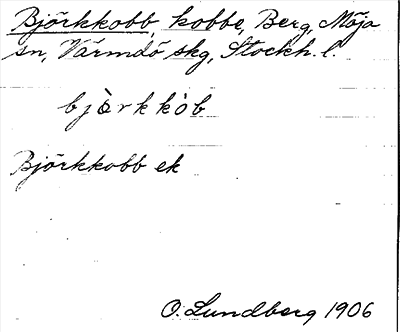 Björkkobb, kobbe, Berg, Möja
sn, Värmdö skg, Stockh. l.
bjὰrkkὸb
Björkkobb ek
O. Lundberg 1906